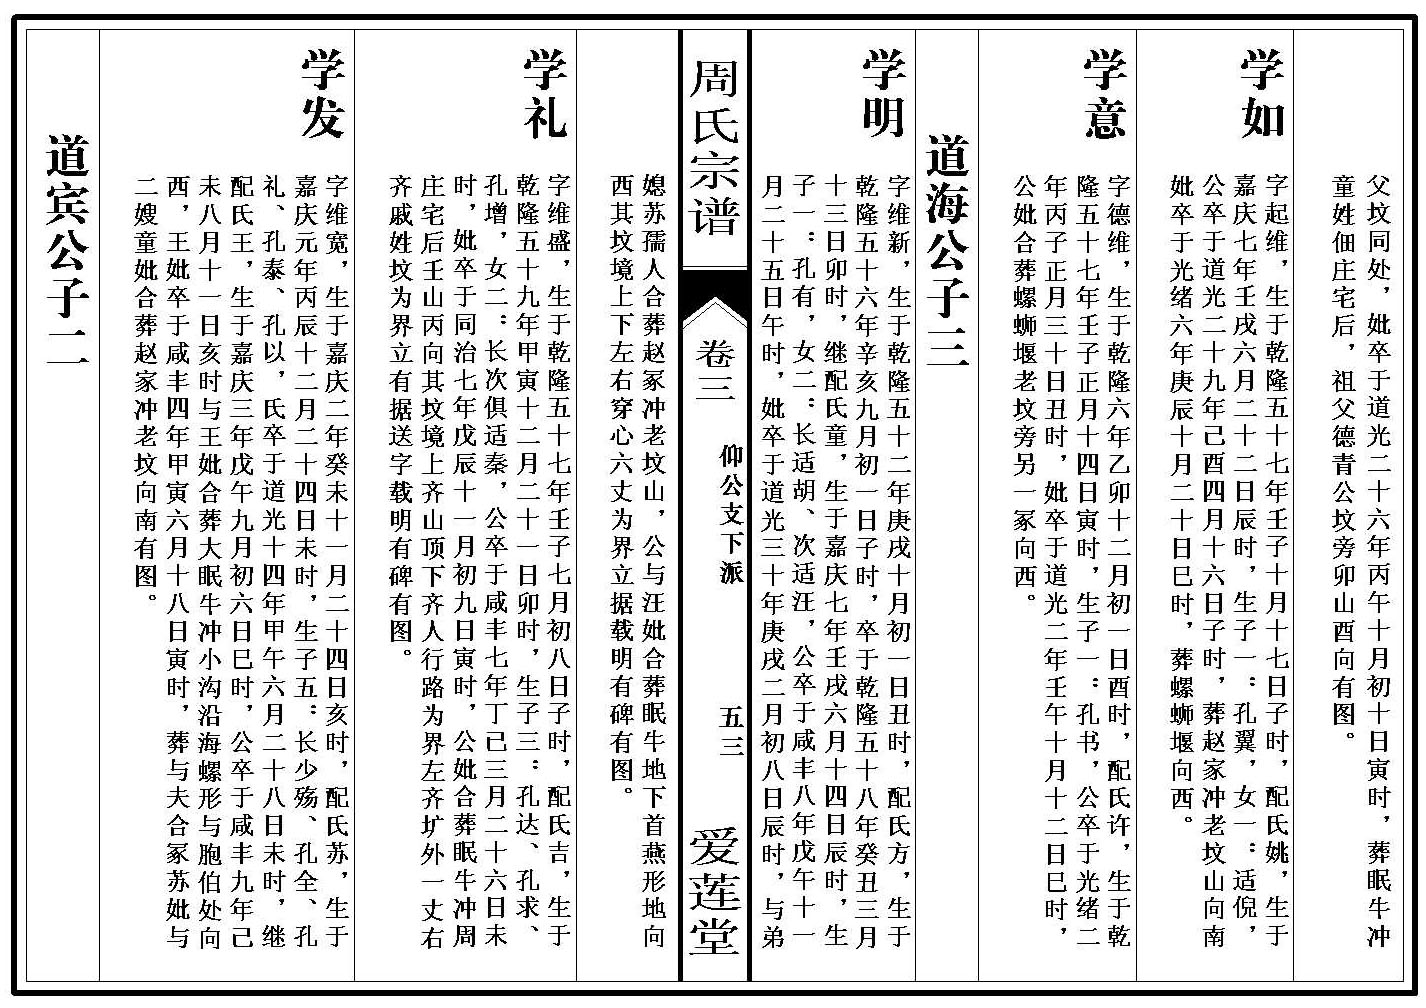 父坟同处，妣卒于道光二十六年丙午十月初十日寅时，葬眠牛冲
童姓佃庄宅后，祖父德青公坟旁卯山酉向有图。
学如
字起维，生于乾隆五十七年壬子十月十七日子时，配氏姚，生于
嘉庆七年壬戌六月二十二日辰时，生子一：孔翼，女一：适倪，
公卒于道光二十九年己酉四月十六日子时，葬赵家冲老坟山向南
妣卒于光绪六年庚辰十月二十日巳时，葬螺蛳堰向西。
学意
字德维，生于乾隆六年乙卯十二月初一日酉时，配氏许，生于乾
隆五十七年壬子正月十四日寅时，生子一：孔书，公卒于光绪二
年丙子正月三十日丑时，妣卒于道光二年壬午十月十二日巳时，
公妣合葬螺蛳堰老坟旁另一冢向西。
道海公子三
学明
字维新，生于乾隆五十二年庚戌十月初一日丑时，配氏方，生于
乾隆五十六年辛亥九月初一日子时，卒于乾隆五十八年癸丑三月
十三日卯时，继配氏童，生于嘉庆七年壬戌六月十四日辰时，生
子一：孔有，女二：长适胡、次适汪，公卒于咸丰八年戊午十一
月二十五日午时，妣卒于道光三十年庚戌二月初八日辰时，与弟
周氏宗谱
卷三
仰公支下派
五三
爱莲堂
媳苏孺人合葬赵冢冲老坟山，公与汪妣合葬眠牛地下首燕形地向
西其坟境上下左右穿心六丈为界立据载明有碑有图。
学礼
字维盛，生于乾隆五十七年壬子七月初八日子时，配氏吉，生于
乾隆五十九年甲寅十二月二十一日卯时，生子三：孔达、孔求、
孔增，女二：长次俱适秦，公卒于咸丰七年丁己三月二十六日未
时，妣卒于同治七年戊辰十一月初九日寅时，公妣合葬眠牛冲周
庄宅后壬山丙向其坟境上齐山顶下齐人行路为界左齐圹外一丈右
齐戚姓坟为界立有据送字载明有碑有图。
学发
字维宽，生于嘉庆二年癸未十一月二十四日亥时，配氏苏，生于
嘉庆元年丙辰十二月二十四日未时，生子五：长少殇、孔全、孔
礼、孔泰、孔以，氏卒于道光十四年甲午六月二十八日未时，继
配氏王，生于嘉庆三年戊午九月初六日巳时，公卒于咸丰九年己
未八月十一日亥时与王妣合葬大眠牛冲小沟沿海螺形与胞伯处向
西，王妣卒于咸丰四年甲寅六月十八日寅时，葬与夫合冢苏妣与
二嫂童妣合葬赵家冲老坟向南有图。
道宾公子二